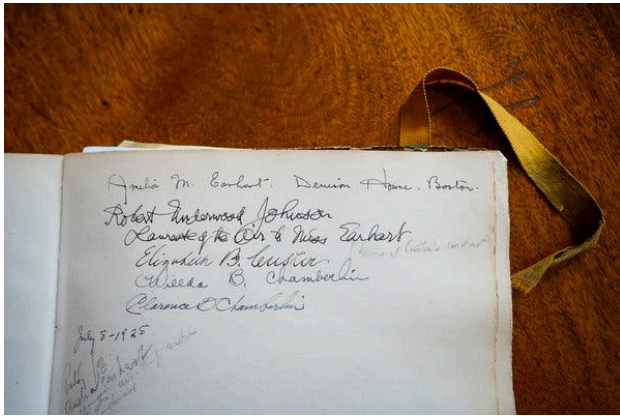 Amelia M. Earhart. Denison House. Boston.
Robert Underwood Johnson
Laureate of the Air to Miss Earhart
Elizabeth B. Custer.
General Custer's
B. Chamberlin
Clarence D Chamberlin
July 5-1928
Earhart